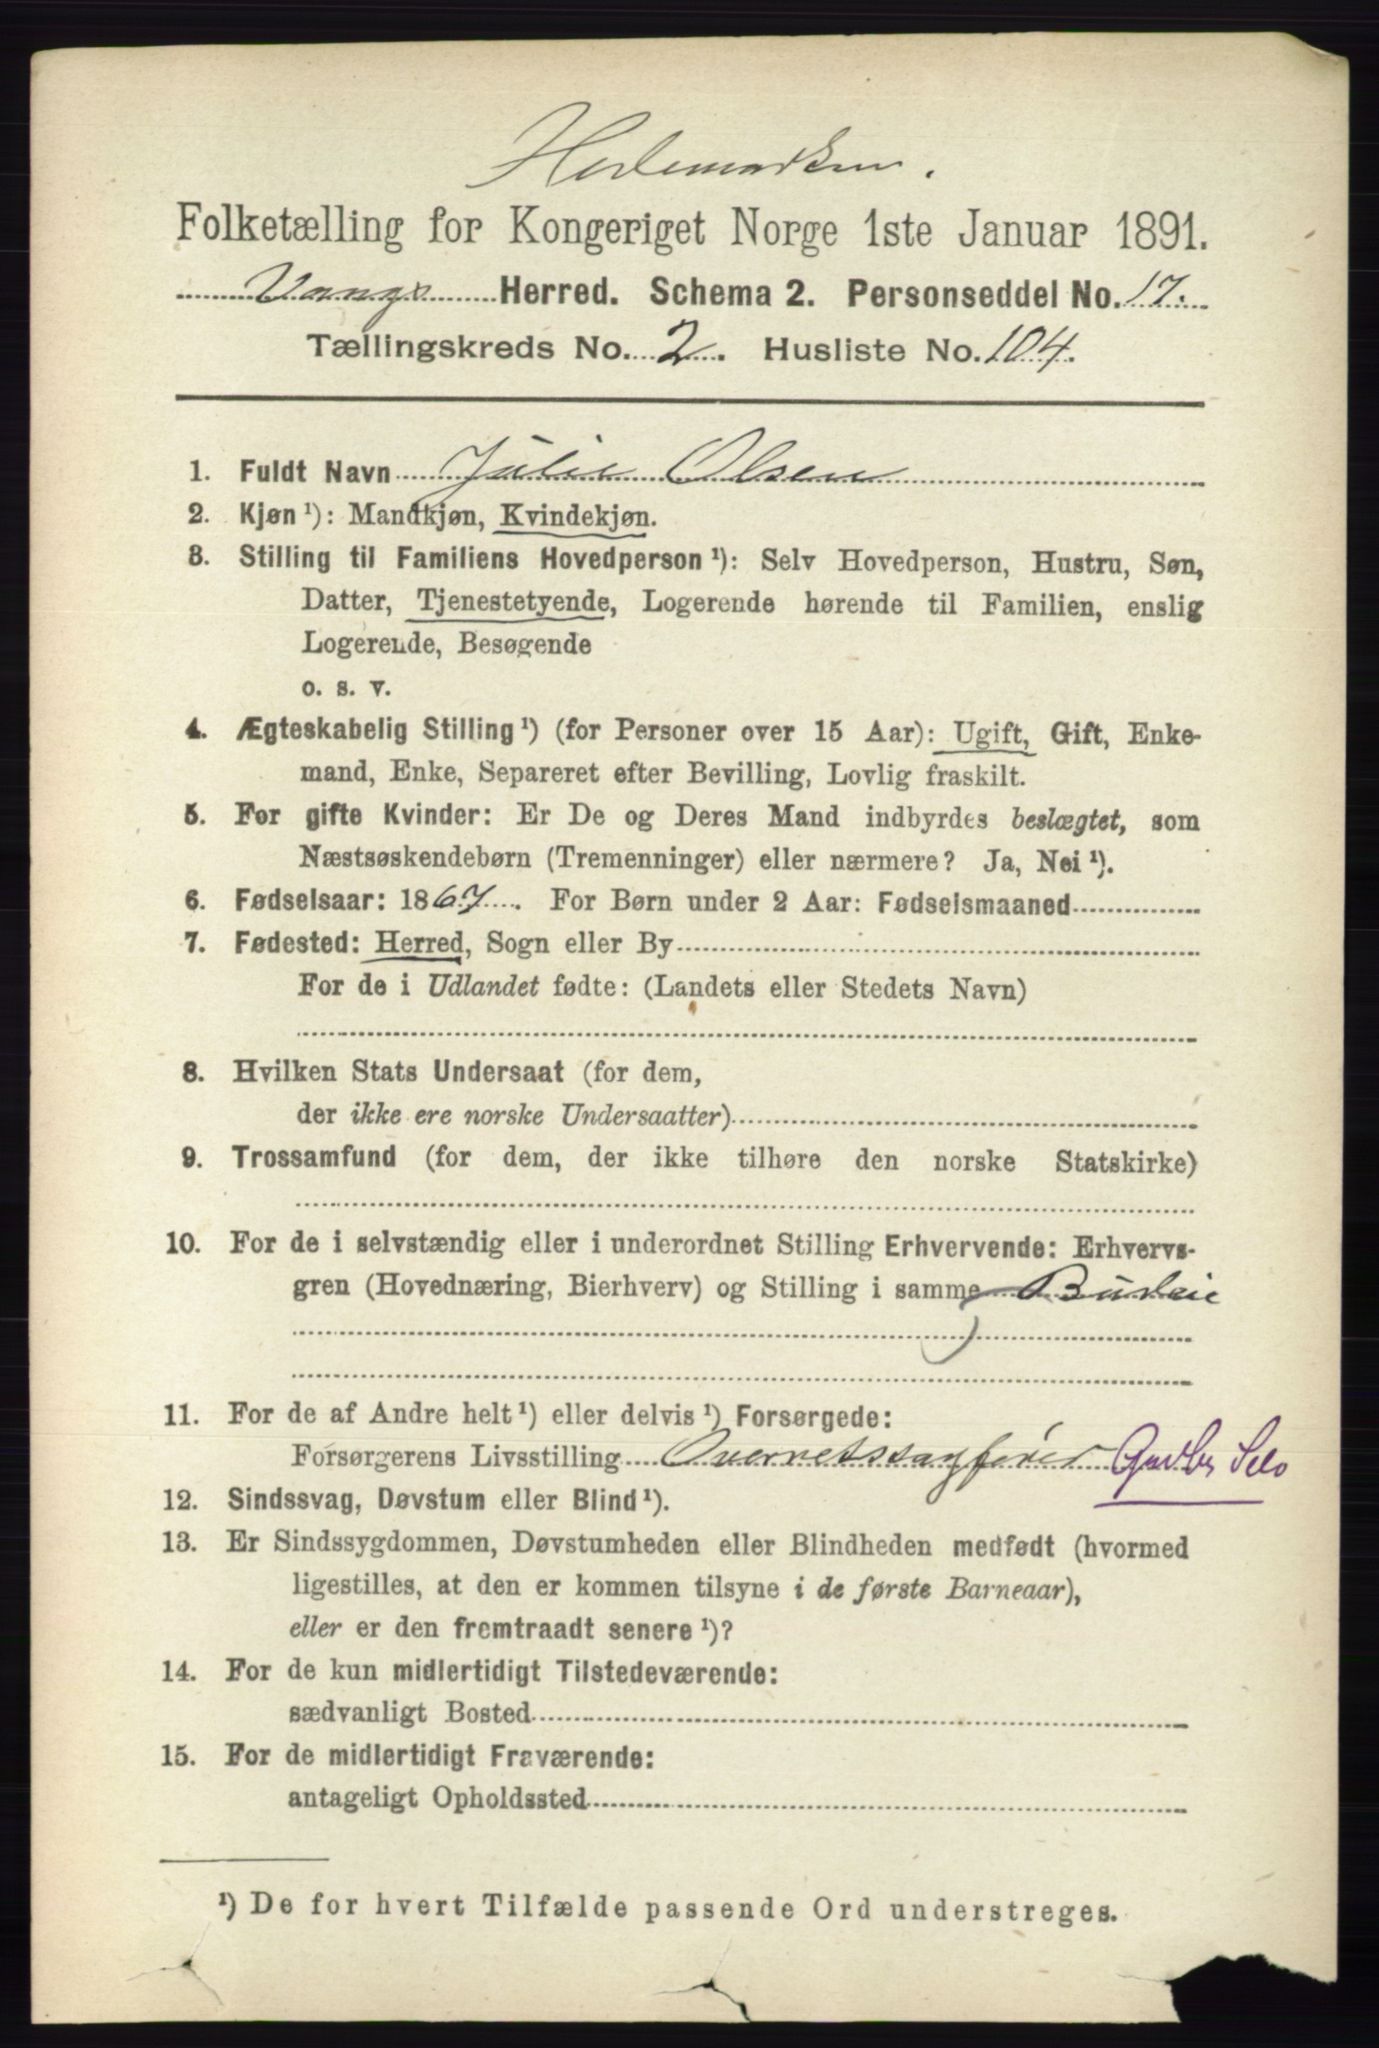 Hedemarken.
Folketælling for Kongeriget Norge 1ste Januar 1891.
Vangs Herred. Schema 2. Personseddel No. 17.
Tællingskreds No. 2. Husliste No. 104.
1. Fuldt Navn Julie Olsen
2. Kjøn ¹): Mandkjøn, Kvindekjøn.
3. Stilling til Familiens Hovedperson ¹): Selv Hovedperson, Hustru, Søn,
Datter, Tjenestetyende, Logerende hørende til Familien, enslig
Logerende, Besøgende
o. s. v.
4. Ægteskabelig Stilling ¹) (for Personer over 15 Aar): Ugift, Gift, Enke-
mand, Enke, Separeret efter Bevilling, Lovlig fraskilt.
5. For gifte Kvinder: Er De og Deres Mand indbyrdes beslægtet, som
Næstsøskendebørn (Tremenninger) eller nærmere? Ja, Nei ¹).
6. Fødselsaar: 1867. For Børn under 2 Aar: Fødselsmaaned
7. Fødested: Herred, Sogn eller By
For de i Udlandet fødte: (Landets eller Stedets Navn)
8. Hvilken Stats Undersaat (for dem,
der ikke ere norske Undersaatter)
9. Trossamfund (for dem, der ikke tilhøre den norske Statskirke)
10. For de i selvstændig eller i underordnet Stilling Erhvervende: Erhvervs-
gren (Hovednæring, Bierhverv) og Stilling i samme Budeie
11. For de af Andre helt ¹) eller delvis ¹) Forsørgede:
Forsørgerens Livsstilling Overretssagfører
12. Sindssvag, Døvstum eller Blind ¹).
13. Er Sindssygdommen, Døvstumheden eller Blindheden medfødt (hvormed
ligestilles, at den er kommen tilsyne i de første Barneaar),
eller er den fremtraadt senere ¹)?
14. For de kun midlertidigt Tilstedeværende:
sædvanligt Bosted
15. For de midlertidigt Fraværende:
antageligt Opholdssted
¹) De for hvert Tilfælde passende Ord understreges.